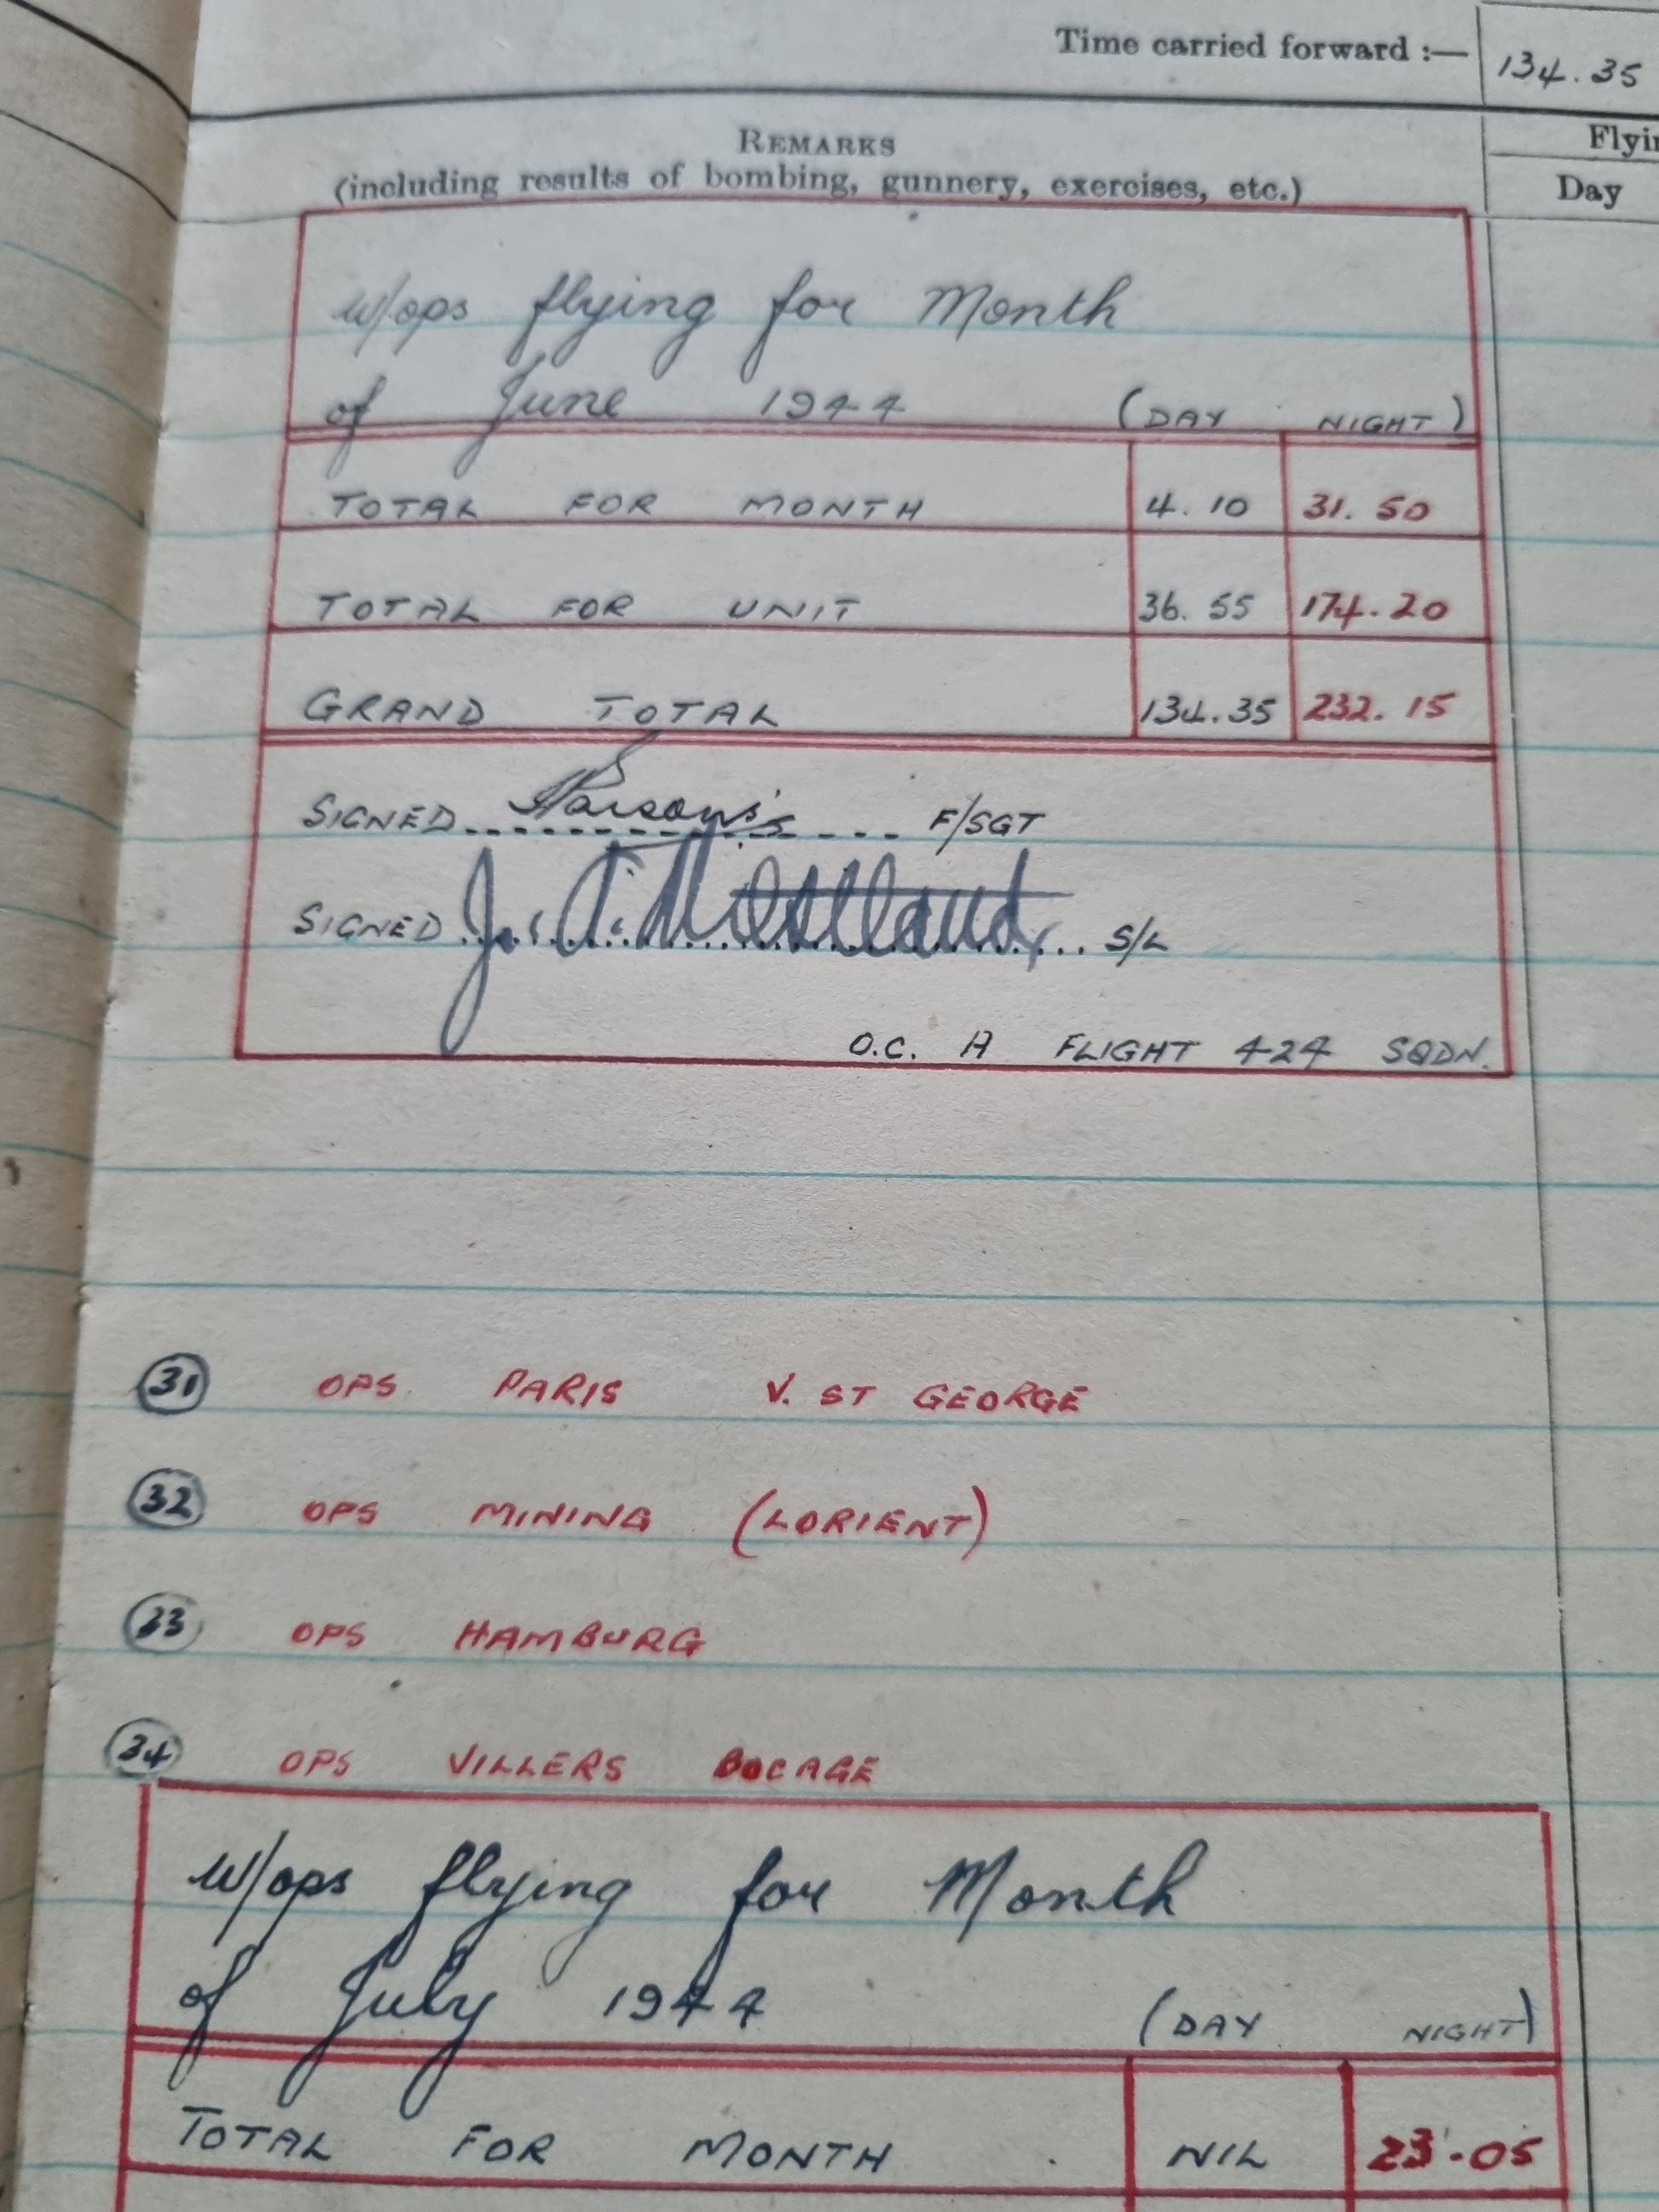 Time carried forward :— 134.35
REMARKS
(including results of bombing, gunnery, exercises, etc.)
Day
w/ops flying for Month
of June 1944 (DAY NIGHT)
TOTAL FOR MONTH 4.10 31.50
TOTAL FOR UNIT 36.55 174.20
GRAND TOTAL 134.35 232.15
SIGNED Parsons F/SGT
SIGNED J. S/L
O.C. A FLIGHT 424 SQDN.
31 OPS PARIS V. ST GEORGE
32 OPS MINING (LORIENT)
33 OPS HAMBURG
34 OPS VILLERS BOCAGE
w/ops flying for Month
of July 1944 (DAY NIGHT)
TOTAL FOR MONTH NIL 23.05